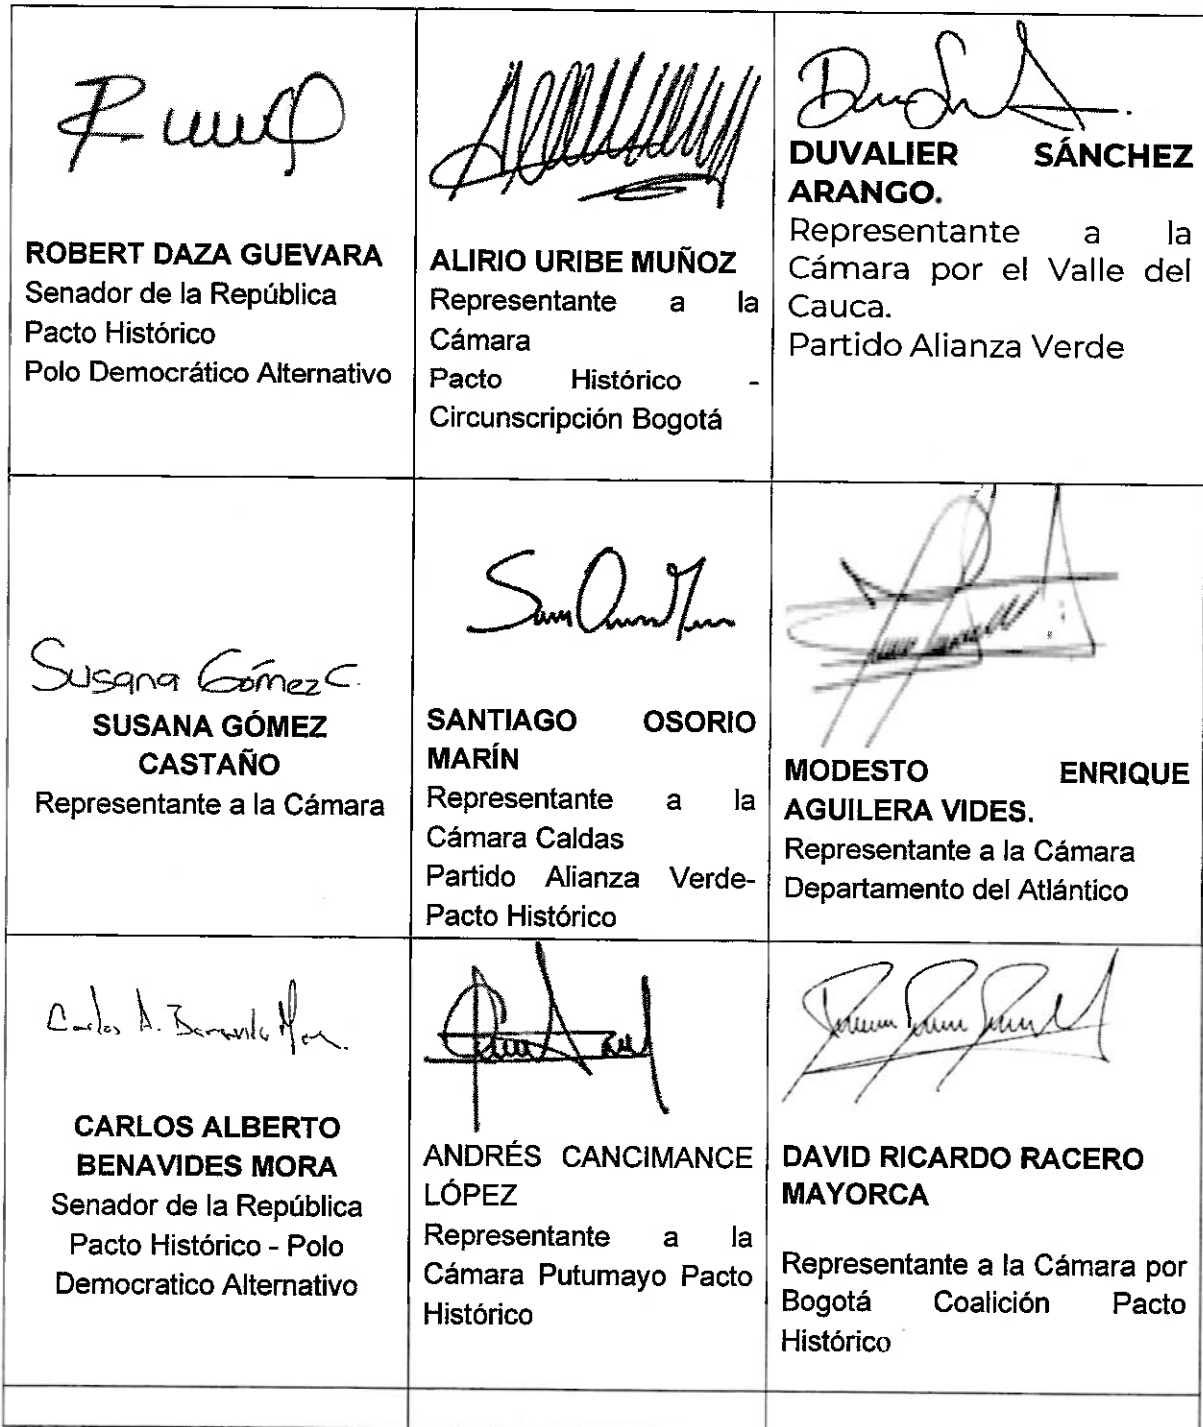 ROBERT DAZA GUEVARA
Senador de la República
Pacto Histórico
Polo Democrático Alternativo
ALIRIO URIBE MUÑOZ
Representante a la
Cámara
Pacto Histórico -
Circunscripción Bogotá
DUVALIER SÁNCHEZ
ARANGO.
Representante a la
Cámara por el Valle del
Cauca.
Partido Alianza Verde
Susana Gómez C.
SUSANA GÓMEZ
CASTAÑO
Representante a la Cámara
SANTIAGO OSORIO
MARÍN
Representante a la
Cámara Caldas
Partido Alianza Verde-
Pacto Histórico
MODESTO ENRIQUE
AGUILERA VIDES.
Representante a la Cámara
Departamento del Atlántico
Carlos A. Benavides Mora
CARLOS ALBERTO
BENAVIDES MORA
Senador de la República
Pacto Histórico - Polo
Democratico Alternativo
ANDRÉS CANCIMANCE
LÓPEZ
Representante a la
Cámara Putumayo Pacto
Histórico
DAVID RICARDO RACERO
MAYORCA
Representante a la Cámara por
Bogotá Coalición Pacto
Histórico